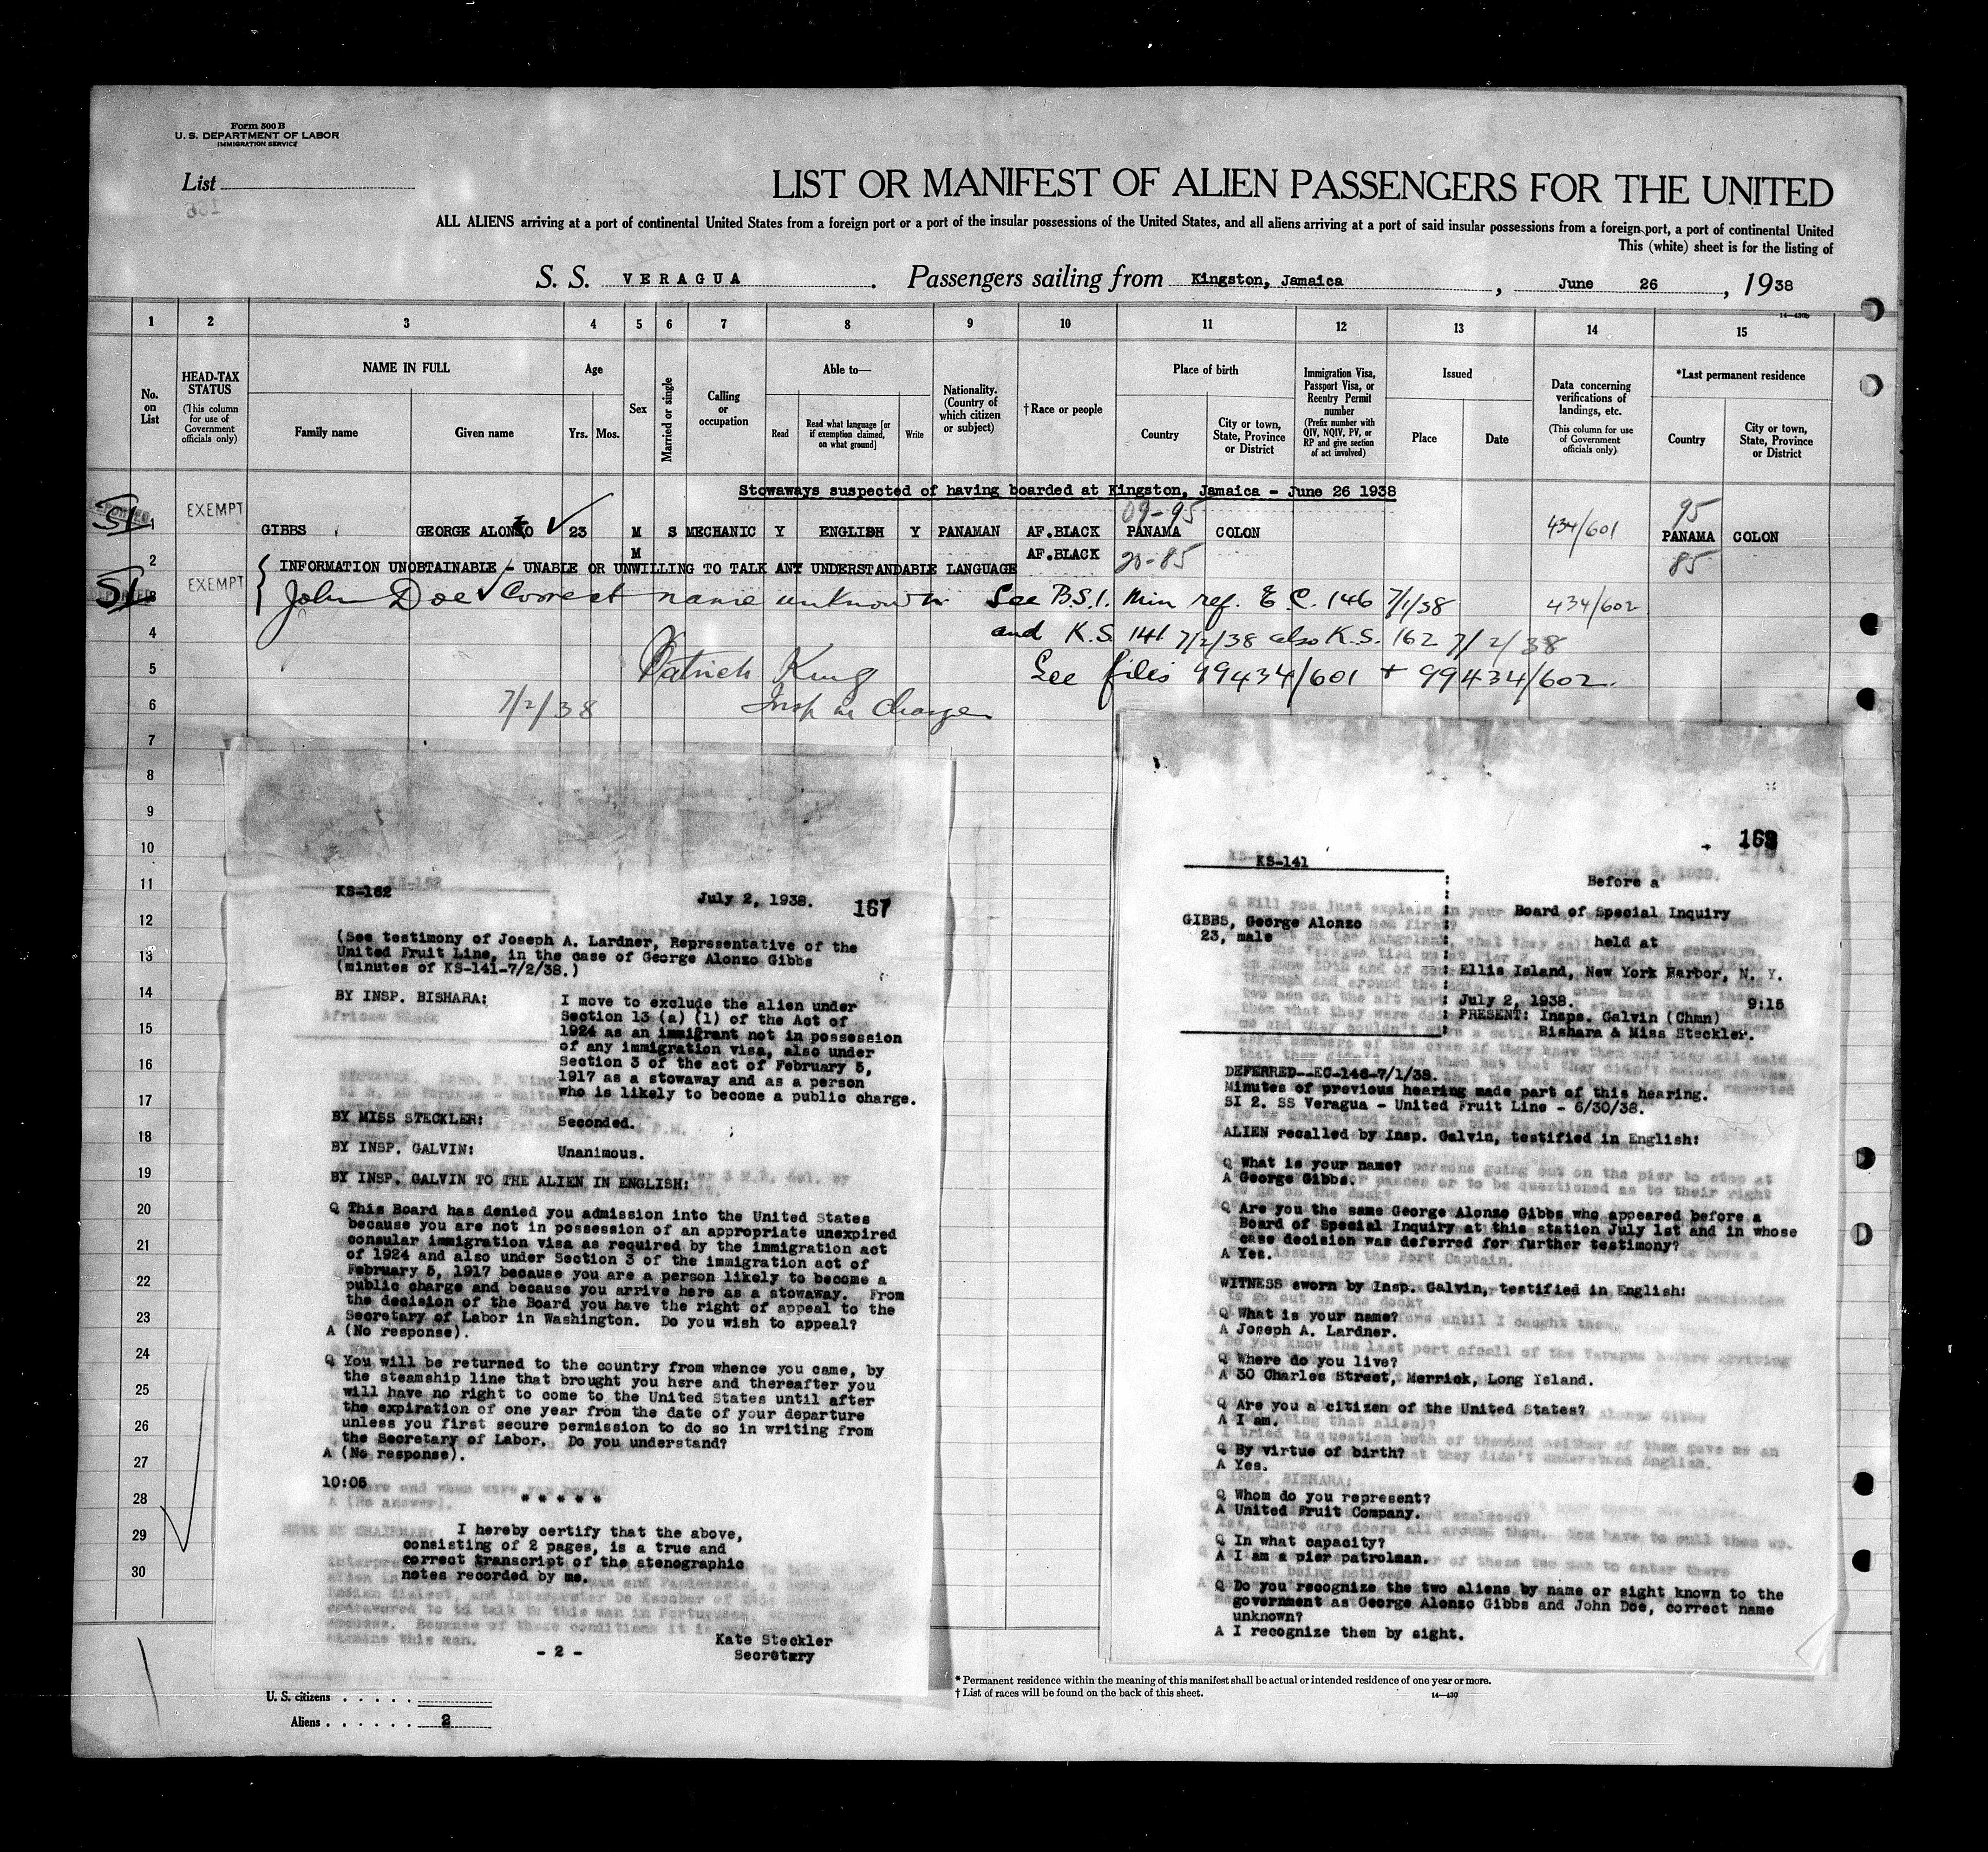 Form 500 B
U. S. DEPARTMENT OF LABOR
IMMIGRATION SERVICE
List
166
LIST OR MANIFEST OF ALIEN PASSENGERS FOR THE UNITED
ALL ALIENS arriving at a port of continental United States from a foreign port or a port of the insular possessions of the United States, and all aliens arriving at a port of said insular possessions from a foreign port, a port of continental United
This (white) sheet is for the listing of
S. S. VERAGUA. Passengers sailing from Kingston, Jamaica, June 26, 1938
14—430b
1 2 3 4 5 6 7 8 9 10 11 12 13 14 15
No. on List
HEAD-TAX STATUS
(This column for use of Government officials only)
NAME IN FULL
Family name
Given name
Age
Yrs. Mos.
Sex
Married or single
Calling or occupation
Able to—
Read
Read what language [or if exemption claimed, on what ground]
Write
Nationality. (Country of which citizen or subject)
†Race or people
Place of birth
Country
City or town, State, Province or District
Immigration Visa, Passport Visa, or Reentry Permit number
(Prefix number with QIV, NQIV, PV, or RP and give section of act involved)
Issued
Place
Date
Data concerning verifications of landings, etc.
(This column for use of Government officials only)
*Last permanent residence
Country
City or town, State, Province or District
Stowaways suspected of having boarded at Kingston, Jamaica - June 26 1938
EXEMPT
09-95 95
SI 1 GIBBS GEORGE ALONZO 23 M S MECHANIC Y ENGLISH Y PANAMAN AF.BLACK PANAMA COLON 434/601 PANAMA COLON
2 M AF.BLACK 20-85 85
INFORMATION UNOBTAINABLE - UNABLE OR UNWILLING TO TALK ANY UNDERSTANDABLE LANGUAGE
EXEMPT
SI 3 John Doe Correct name unknown See B.S.I. Min ref. E C. 146 7/1/38 434/602
4 and K.S. 141 7/2/38 also K.S. 162 7/2/38
5 Patrick King See files 99434/601 + 99434/602.
6 7/2/38 Insp in Charge
7
8
9
10
11
12
13
14
15
16
17
18
19
20
21
22
23
24
25
26
27
28
29
30
KS-162
July 2, 1938. 167
(See testimony of Joseph A. Lardner, Representative of the
United Fruit Line, in the case of George Alonzo Gibbs
(minutes of KS-141-7/2/38.)
BY INSP. BISHARA: I move to exclude the alien under
Section 13 (a) (1) of the Act of
1924 as an immigrant not in possession
of any immigration visa, also under
Section 3 of the act of February 5,
1917 as a stowaway and as a person
who is likely to become a public charge.
BY MISS STECKLER: Seconded.
BY INSP. GALVIN: Unanimous.
BY INSP. GALVIN TO THE ALIEN IN ENGLISH:
Q This Board has denied you admission into the United States
because you are not in possession of an appropriate unexpired
consular immigration visa as required by the immigration act
of 1924 and also under Section 3 of the immigration act of
February 5, 1917 because you are a person likely to become a
public charge and because you arrive here as a stowaway. From
the decision of the Board you have the right of appeal to the
Secretary of Labor in Washington. Do you wish to appeal?
A (No response).
Q You will be returned to the country from whence you came, by
the steamship line that brought you here and thereafter you
will have no right to come to the United States until after
the expiration of one year from the date of your departure
unless you first secure permission to do so in writing from
the Secretary of Labor. Do you understand?
A (No response).
10:05
* * * * *
I hereby certify that the above,
consisting of 2 pages, is a true and
correct transcript of the stenographic
notes recorded by me.
Kate Steckler
Secretary
- 2 -
168
KS-141
Before a
Board of Special Inquiry
GIBBS, George Alonzo
23, male
held at
Ellis Island, New York Harbor, N. Y.
July 2, 1938. 9:15
PRESENT: Insps. Galvin (Chmn)
Bishara & Miss Steckler.
DEFERRED--EC-146-7/1/38.
Minutes of previous hearing made part of this hearing.
SI 2. SS Veragua - United Fruit Line - 6/30/38.
ALIEN recalled by Insp. Galvin, testified in English:
Q What is your name?
A George Gibbs.
Q Are you the same George Alonzo Gibbs who appeared before a
Board of Special Inquiry at this station July 1st and in whose
case decision was deferred for further testimony?
A Yes.
WITNESS sworn by Insp. Galvin, testified in English:
Q What is your name?
A Joseph A. Lardner.
Q Where do you live?
A 30 Charles Street, Merrick, Long Island.
Q Are you a citizen of the United States?
A I am.
Q By virtue of birth?
A Yes.
Q Whom do you represent?
A United Fruit Company.
Q In what capacity?
A I am a pier patrolman.
Q Do you recognize the two aliens by name or sight known to the
government as George Alonzo Gibbs and John Doe, correct name
unknown?
A I recognize them by sight.
* Permanent residence within the meaning of this manifest shall be actual or intended residence of one year or more.
† List of races will be found on the back of this sheet.
14—430
U. S. citizens
Aliens 2